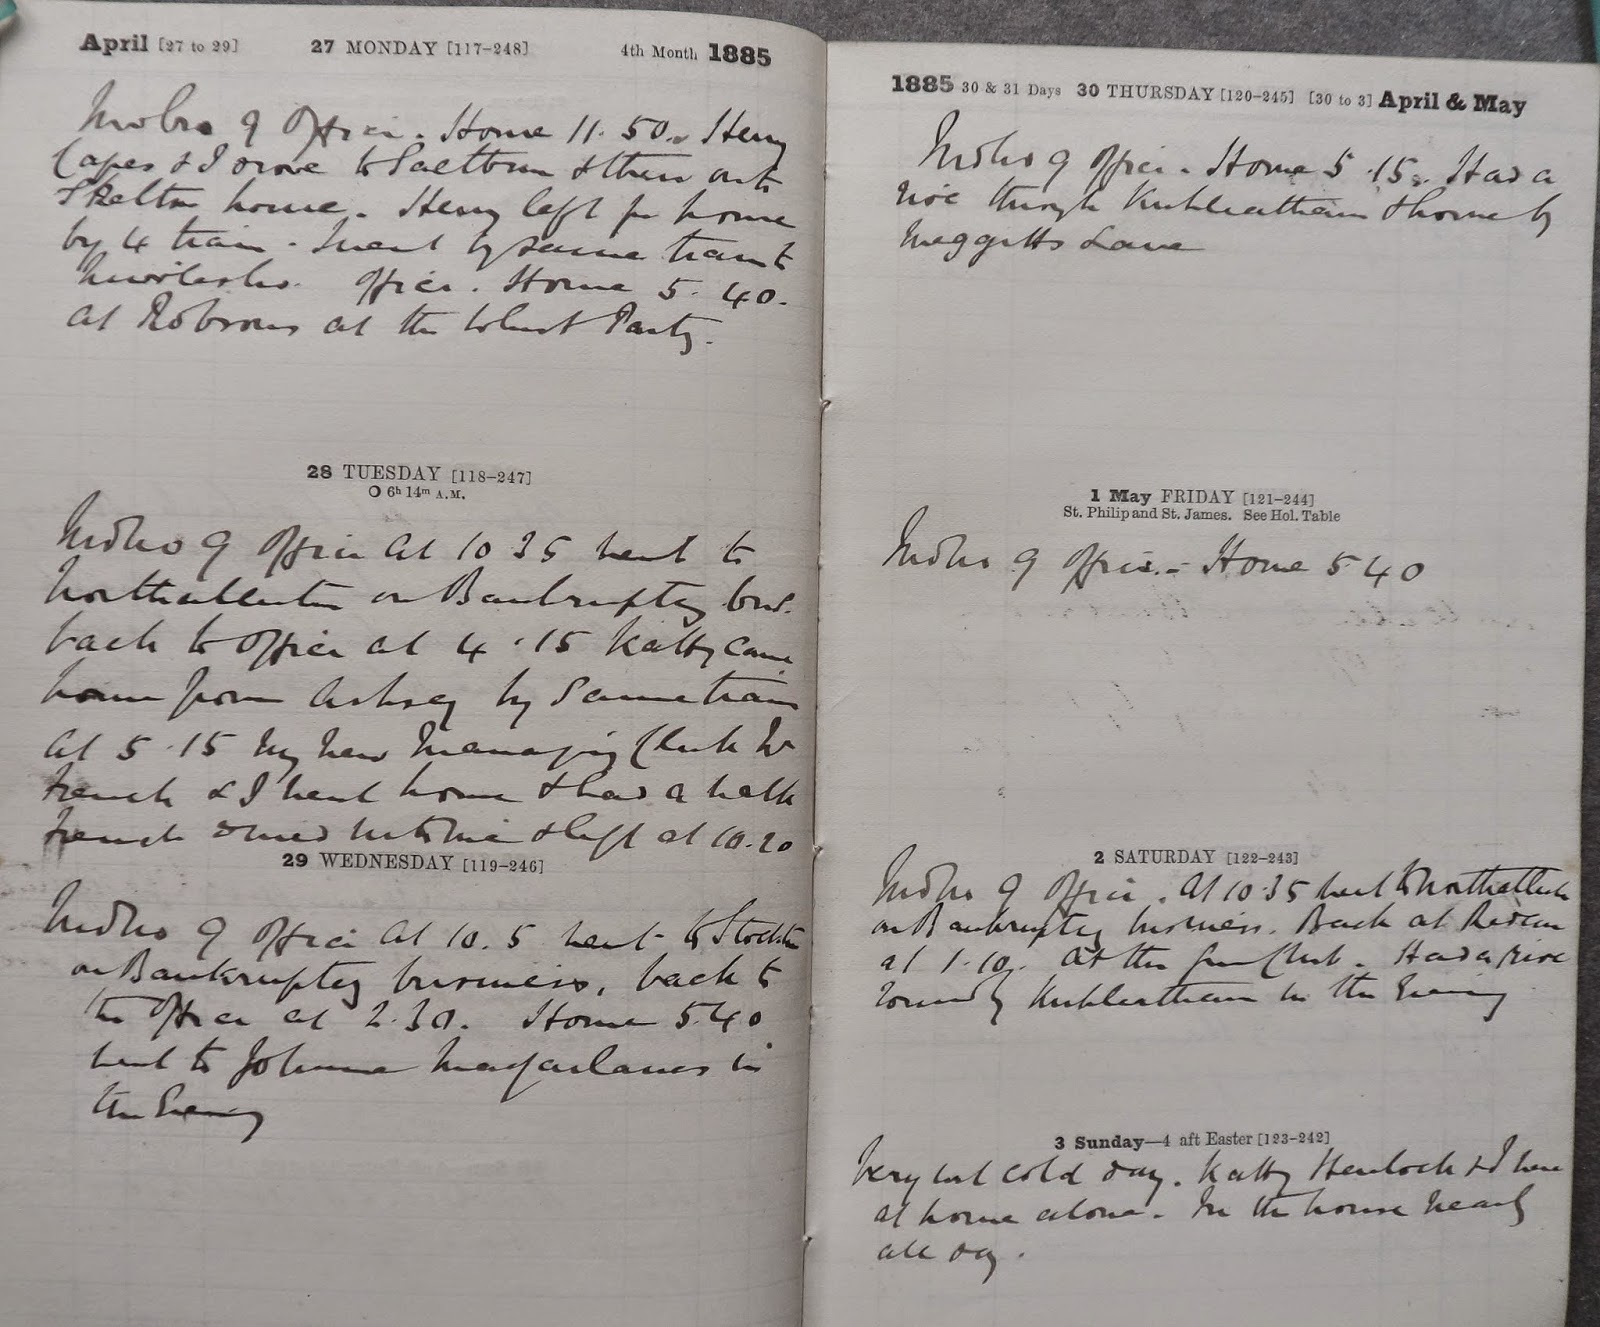 April [27 to 29] 27 MONDAY [117–248] 4th Month 1885
Mdbro 9 Office. Home 11.50. Henry
Capes & I drove to Saltburn & then on to
Skelton home. Henry left for home
by 4 train. I went by same train to
Middlesbro. Office. Home 5.40.
at Robsons at the Whist Party.
28 TUESDAY [118–247]
O 6h 14m A.M.
Mdbro 9 Office at 10 35 went to
Northallerton on Bankruptcy bus.
back to Office at 4.15 Katty came
home from by Same train
at 5.15 my new Managing Clerk Mr
French & I went home & had a walk
French dined with me & left at 10.20
29 WEDNESDAY [119–246]
Mdbro 9 Office at 10.5 went to Stockton
on Bankruptcy business, back to
the Office at 2.30. Home 5.40
went to Johnnie Macfarlanes in
the Evening
1885 30 & 31 Days 30 THURSDAY [120–245] [30 to 3] April & May
Mdbro 9 Office. Home 5.15. Had a
ride through Kirkleatham & home by
Meggitts Lane
1 May FRIDAY [121–244]
St. Philip and St. James. See Hol. Table
Mdbro 9 Office. – Home 5 40
2 SATURDAY [122–243]
Mdbro 9 Office. At 10.35 went to Northallerton
on Bankruptcy business. Back at Redcar
at 1.10. At the Gun Club. Had a ride
round by Kirkleatham in the Evening
3 Sunday—4 aft Easter [123–242]
Very wet cold day. Katty & I were
at home alone. In the house nearly
all day.